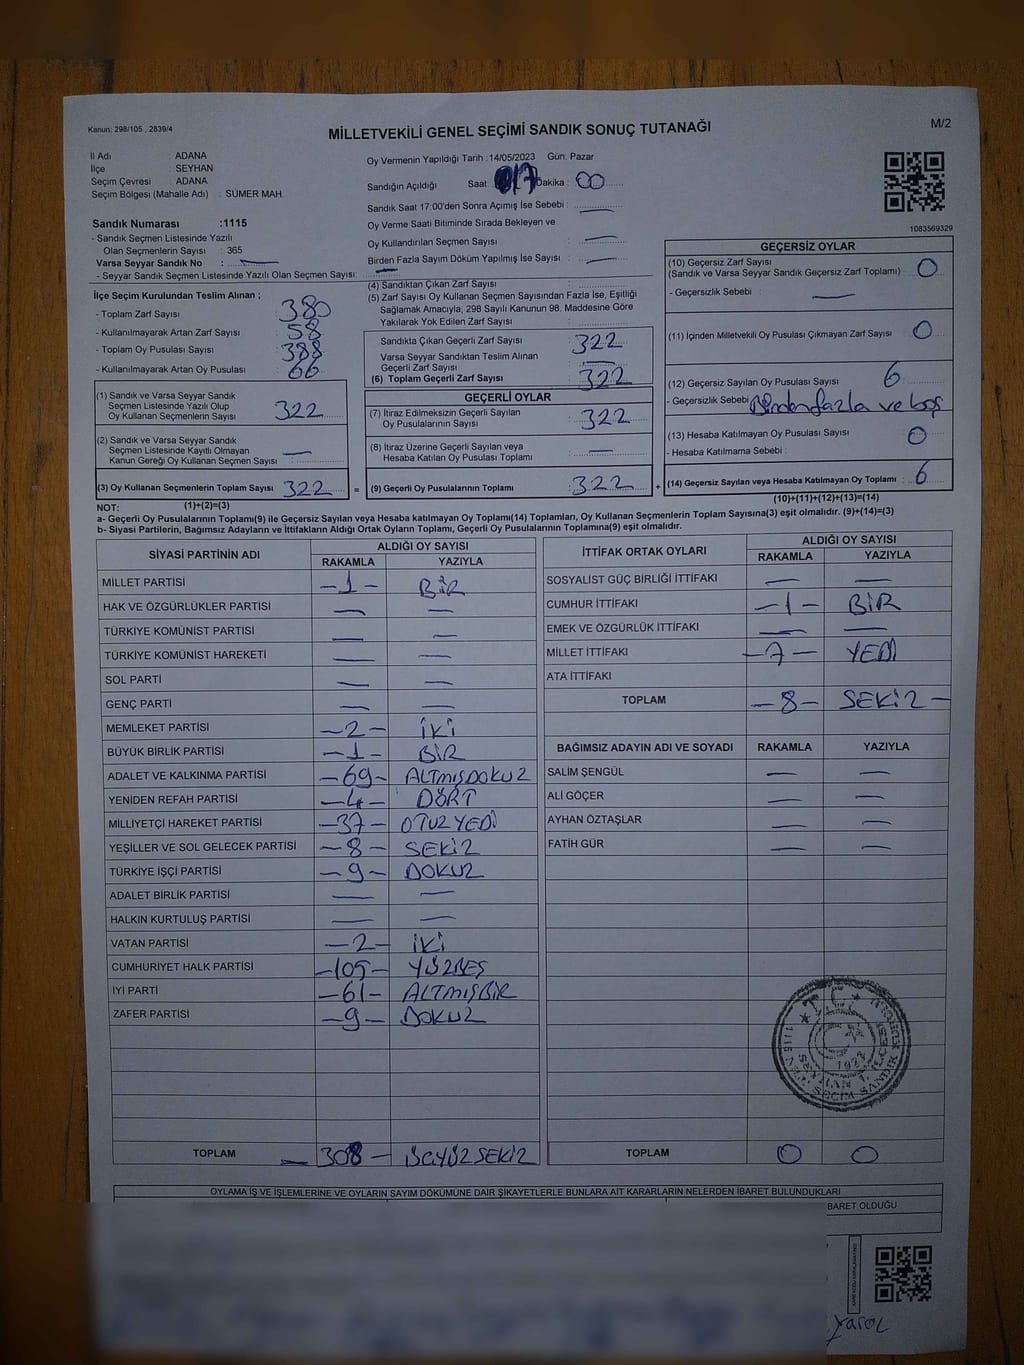 Kanun: 298/105 , 2839/4
MİLLETVEKİLİ GENEL SEÇİMİ SANDIK SONUÇ TUTANAĞI
M/2
İl Adı : ADANA
İlçe : SEYHAN
Seçim Çevresi : ADANA
Seçim Bölgesi (Mahalle Adı) : SÜMER MAH.
Oy Vermenin Yapıldığı Tarih : 14/05/2023 Gün: Pazar
Sandığın Açıldığı Saat: 17 Dakika : 00
Sandık Saat 17:00'den Sonra Açımış İse Sebebi : —
Oy Verme Saati Bitiminde Sırada Bekleyen ve
Oy Kullandırılan Seçmen Sayısı : —
Birden Fazla Sayım Döküm Yapılmış İse Sayısı : —
1083569329
Sandık Numarası :1115
- Sandık Seçmen Listesinde Yazılı
Olan Seçmenlerin Sayısı : 365
Varsa Seyyar Sandık No : —
- Seyyar Sandık Seçmen Listesinde Yazılı Olan Seçmen Sayısı: —
İlçe Seçim Kurulundan Teslim Alınan ;
- Toplam Zarf Sayısı : 380
- Kullanılmayarak Artan Zarf Sayısı : 58
- Toplam Oy Pusulası Sayısı : 388
- Kullanılmayarak Artan Oy Pusulası : 66
(1) Sandık ve Varsa Seyyar Sandık
Seçmen Listesinde Yazılı Olup
Oy Kullanan Seçmenlerin Sayısı : 322
(2) Sandık ve Varsa Seyyar Sandık
Seçmen Listesinde Kayıtlı Olmayan
Kanun Gereği Oy Kullanan Seçmen Sayısı : —
(3) Oy Kullanan Seçmenlerin Toplam Sayısı : 322 =
(1)+(2)=(3)
(4) Sandıktan Çıkan Zarf Sayısı :
(5) Zarf Sayısı Oy Kullanan Seçmen Sayısından Fazla İse, Eşitliği
Sağlamak Amacıyla; 298 Sayılı Kanunun 98. Maddesine Göre
Yakılarak Yok Edilen Zarf Sayısı :
Sandıkta Çıkan Geçerli Zarf Sayısı : 322
Varsa Seyyar Sandıktan Teslim Alınan
Geçerli Zarf Sayısı : —
(6) Toplam Geçerli Zarf Sayısı : 322
GEÇERLİ OYLAR
(7) İtiraz Edilmeksizin Geçerli Sayılan
Oy Pusulalarının Sayısı : 322
(8) İtiraz Üzerine Geçerli Sayılan veya
Hesaba Katılan Oy Pusulası Toplamı : —
(9) Geçerli Oy Pusulalarının Toplamı : 322 +
GEÇERSİZ OYLAR
(10) Geçersiz Zarf Sayısı
(Sandık ve Varsa Seyyar Sandık Geçersiz Zarf Toplamı) : 0
- Geçersizlik Sebebi : —
(11) İçinden Milletvekili Oy Pusulası Çıkmayan Zarf Sayısı : 0
(12) Geçersiz Sayılan Oy Pusulası Sayısı : 6
- Geçersizlik Sebebi : Birden fazla ve boş
(13) Hesaba Katılmayan Oy Pusulası Sayısı : 0
- Hesaba Katılmama Sebebi :
(14) Geçersiz Sayılan veya Hesaba Katılmayan Oy Toplamı : 6
(10)+(11)+(12)+(13)=(14)
NOT:
a- Geçerli Oy Pusulalarının Toplamı(9) ile Geçersiz Sayılan veya Hesaba katılmayan Oy Toplamı(14) Toplamları, Oy Kullanan Seçmenlerin Toplam Sayısına(3) eşit olmalıdır. (9)+(14)=(3)
b- Siyasi Partilerin, Bağımsız Adayların ve İttifakların Aldığı Ortak Oyların Toplamı, Geçerli Oy Pusulalarının Toplamına(9) eşit olmalıdır.
SİYASİ PARTİNİN ADI ALDIĞI OY SAYISI
RAKAMLA YAZIYLA
MİLLET PARTİSİ -1- BİR
HAK VE ÖZGÜRLÜKLER PARTİSİ — —
TÜRKİYE KOMÜNİST PARTİSİ — —
TÜRKİYE KOMÜNİST HAREKETİ — —
SOL PARTİ — —
GENÇ PARTİ — —
MEMLEKET PARTİSİ -2- İKİ
BÜYÜK BİRLİK PARTİSİ -1- BİR
ADALET VE KALKINMA PARTİSİ -69- ALTMIŞDOKUZ
YENİDEN REFAH PARTİSİ -4- DÖRT
MİLLİYETÇİ HAREKET PARTİSİ -37- OTUZYEDİ
YEŞİLLER VE SOL GELECEK PARTİSİ -8- SEKİZ
TÜRKİYE İŞÇİ PARTİSİ -9- DOKUZ
ADALET BİRLİK PARTİSİ — —
HALKIN KURTULUŞ PARTİSİ — —
VATAN PARTİSİ -2- İKİ
CUMHURİYET HALK PARTİSİ -105- YÜZBEŞ
İYİ PARTİ -61- ALTMIŞBİR
ZAFER PARTİSİ -9- DOKUZ
TOPLAM -308- ÜÇYÜZSEKİZ
İTTİFAK ORTAK OYLARI ALDIĞI OY SAYISI
RAKAMLA YAZIYLA
SOSYALİST GÜÇ BİRLİĞİ İTTİFAKI — —
CUMHUR İTTİFAKI -1- BİR
EMEK VE ÖZGÜRLÜK İTTİFAKI — —
MİLLET İTTİFAKI -7- YEDİ
ATA İTTİFAKI
TOPLAM -8- SEKİZ -
BAĞIMSIZ ADAYIN ADI VE SOYADI RAKAMLA YAZIYLA
SALİM ŞENGÜL — —
ALİ GÖÇER — —
AYHAN ÖZTAŞLAR — —
FATİH GÜR — —
T.C.
1923
SEYHAN 1. İLÇESİ
SEÇİM SANDIK
TOPLAM 0 0
OYLAMA İŞ VE İŞLEMLERİNE VE OYLARIN SAYIM DÖKÜMÜNE DAİR ŞİKAYETLERLE BUNLARA AİT KARARLARIN NELERDEN İBARET BULUNDUKLARI
BARET OLDUĞU